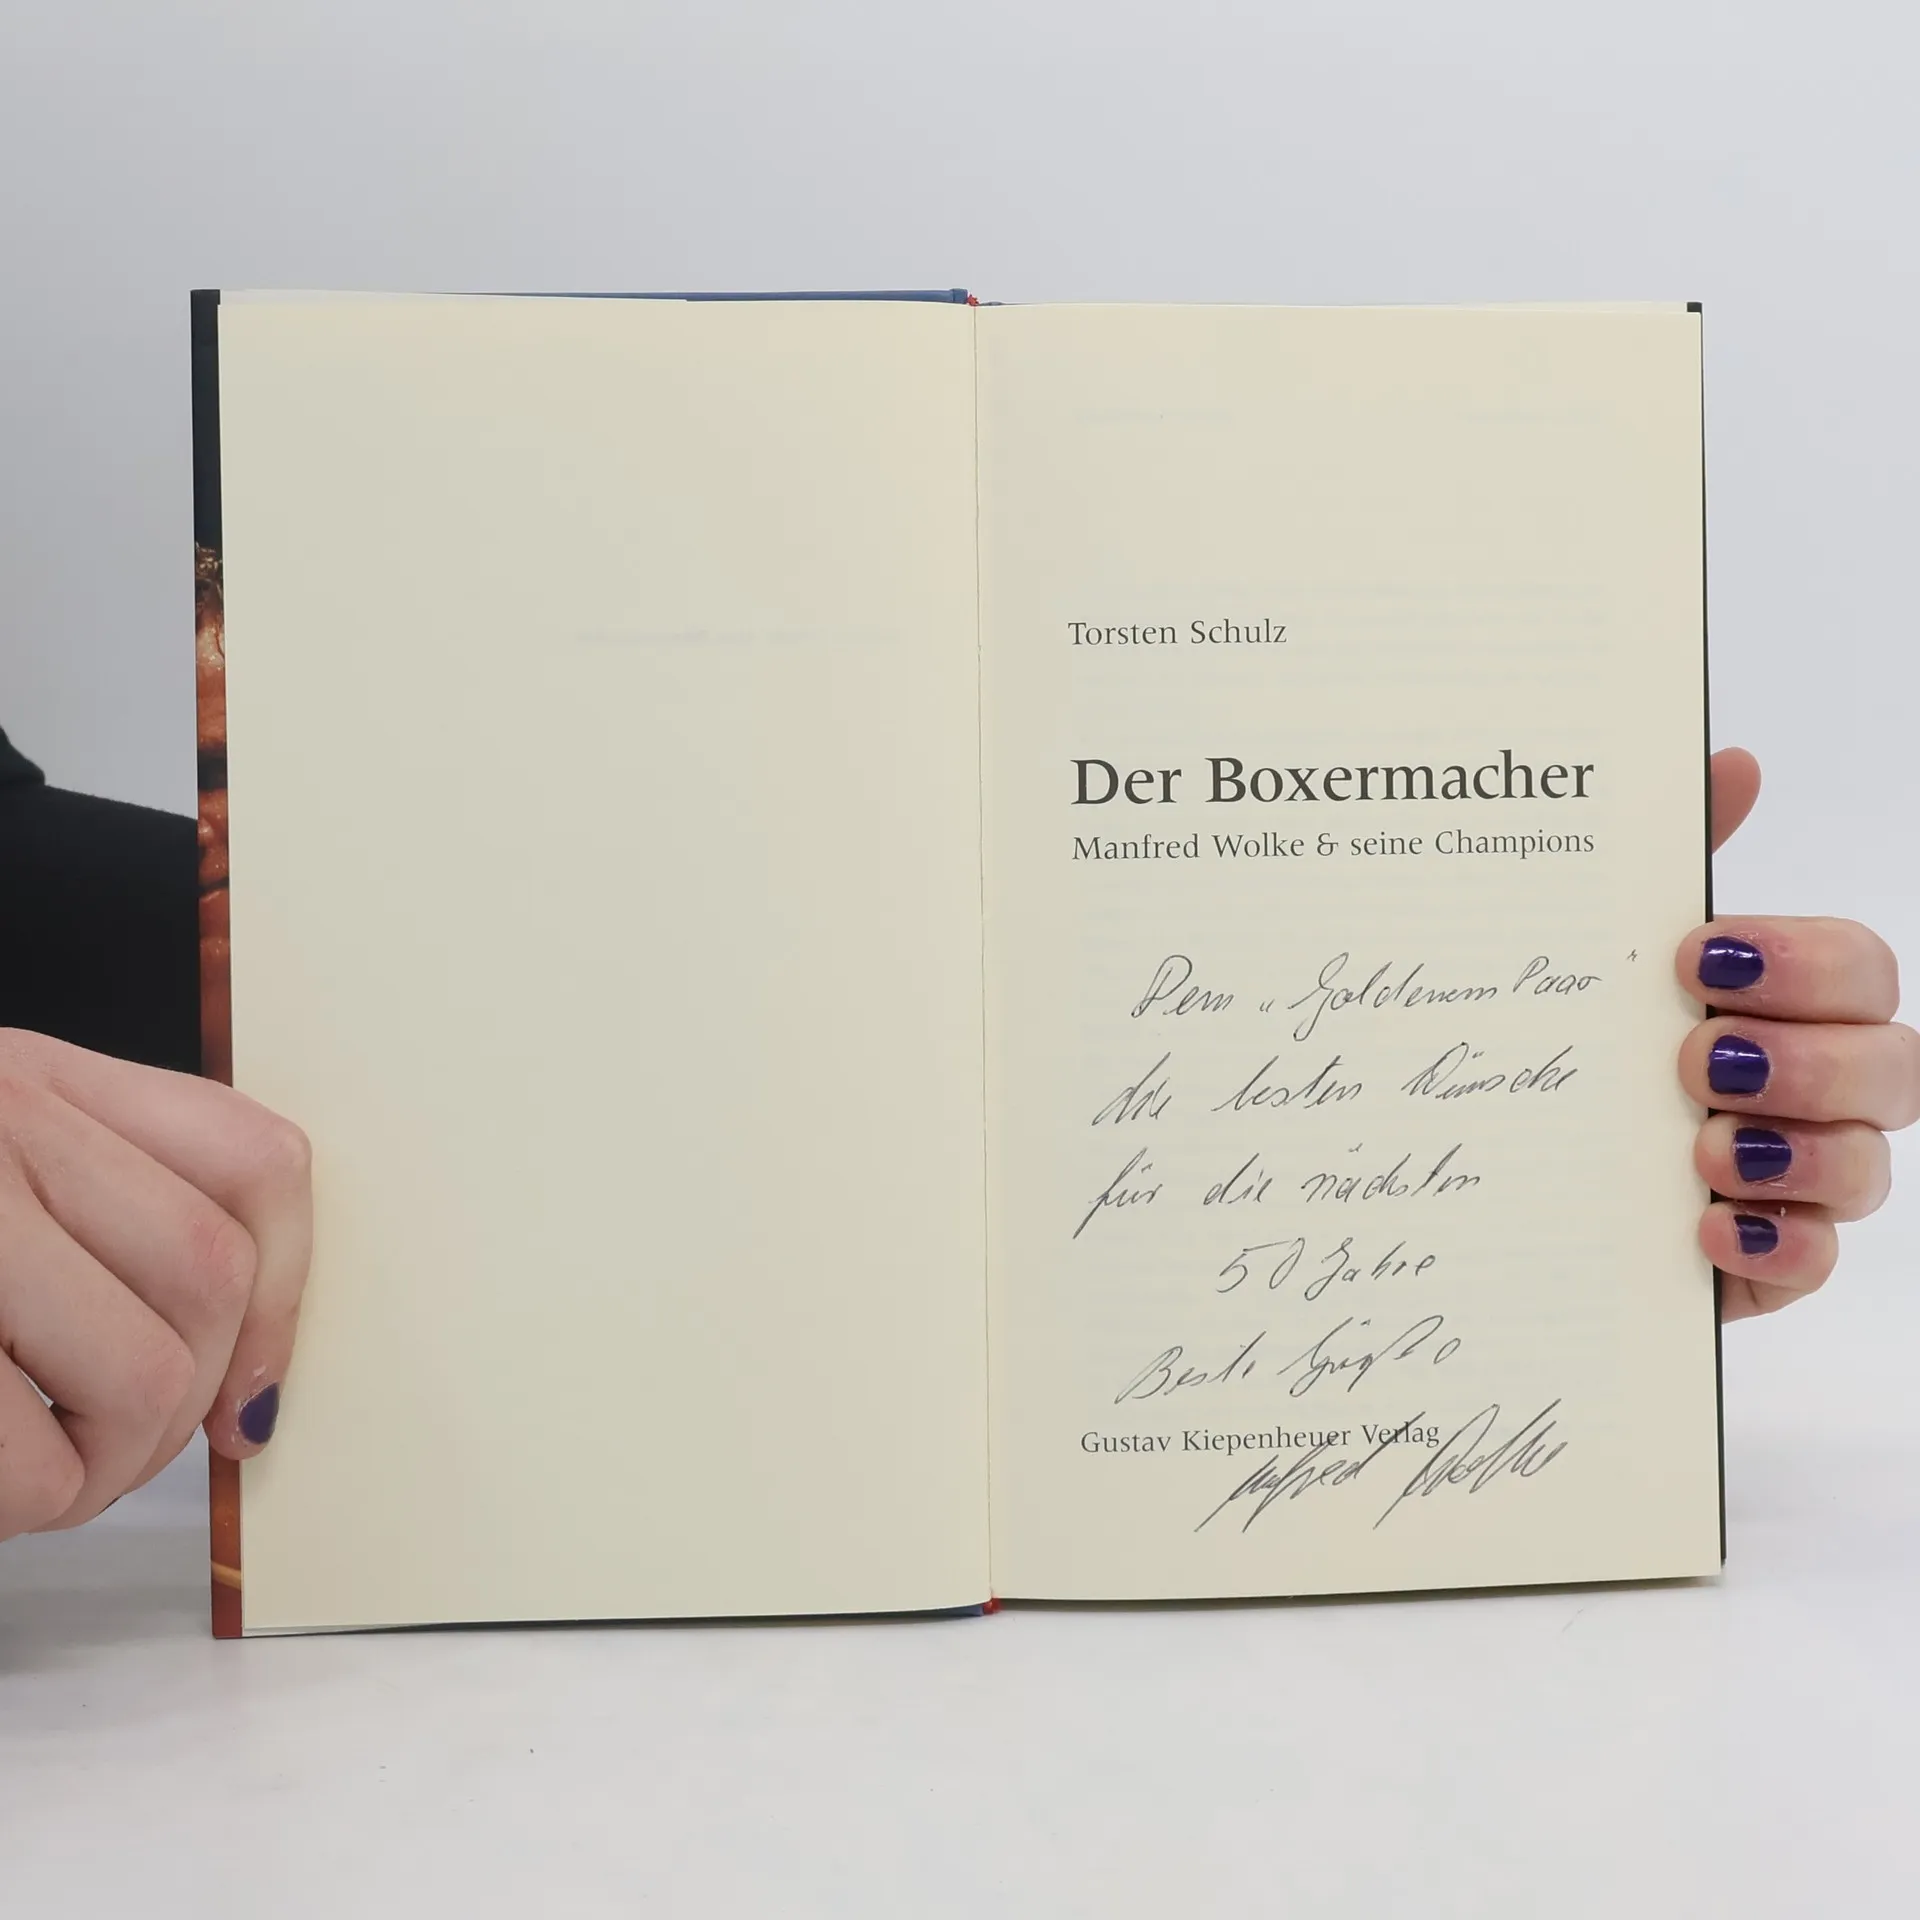 Torsten Schulz
Der Boxermacher
Manfred Wolke & seine Champions
Dem „Goldenem Paar“
die besten Wünsche
für die nächsten
50 Jahre
Beste Grüße
Gustav Kiepenheuer Verlag
Manfred Wolke